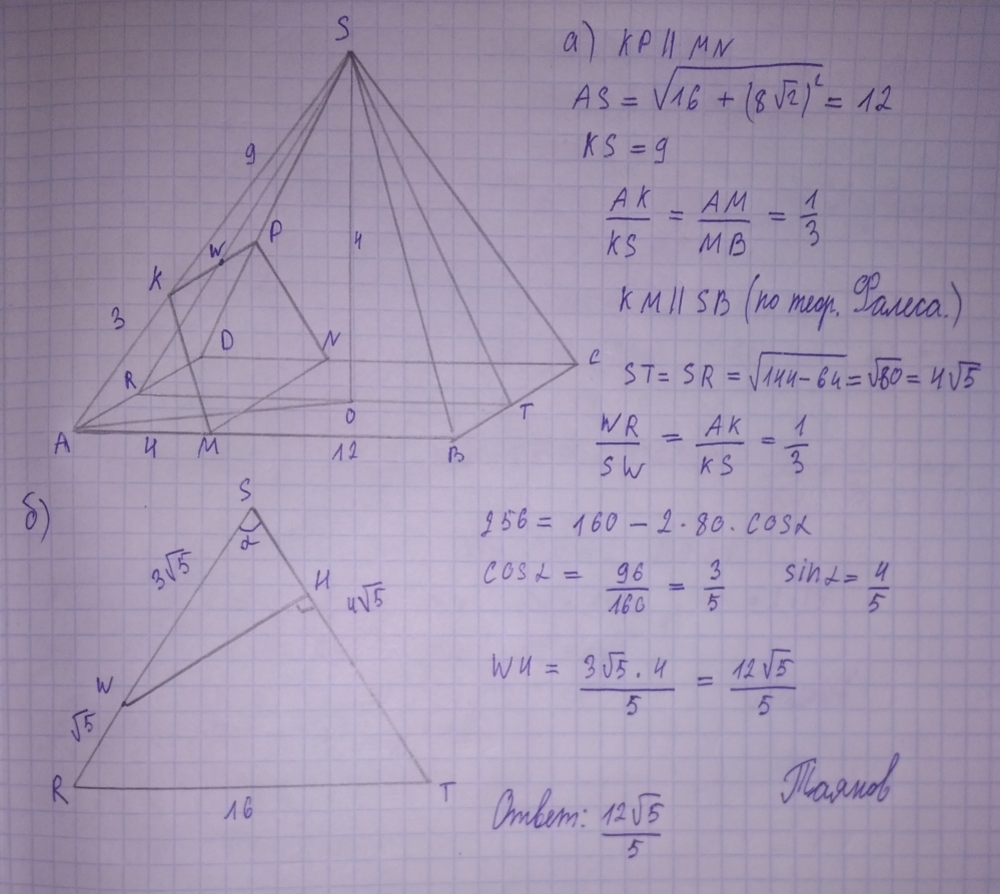 S
9
P
W
K
4
3
D
N
R
C
O
T
A
4
M
12
B
а) KP || MN
AS = √16 + (8√2)² = 12
KS = 9
AK/KS = AM/MB = 1/3
KM || SB (по теор. Фалеса.)
ST = SR = √144-64 = √80 = 4√5
WR/SW = AK/KS = 1/3
б)
S
α
3√5
H
4√5
W
√5
R
T
16
256 = 160 - 2·80·cosα
cosα = 96/160 = 3/5 sinα = 4/5
WH = 3√5·4/5 = 12√5/5
Ответ: 12√5/5
Таянов